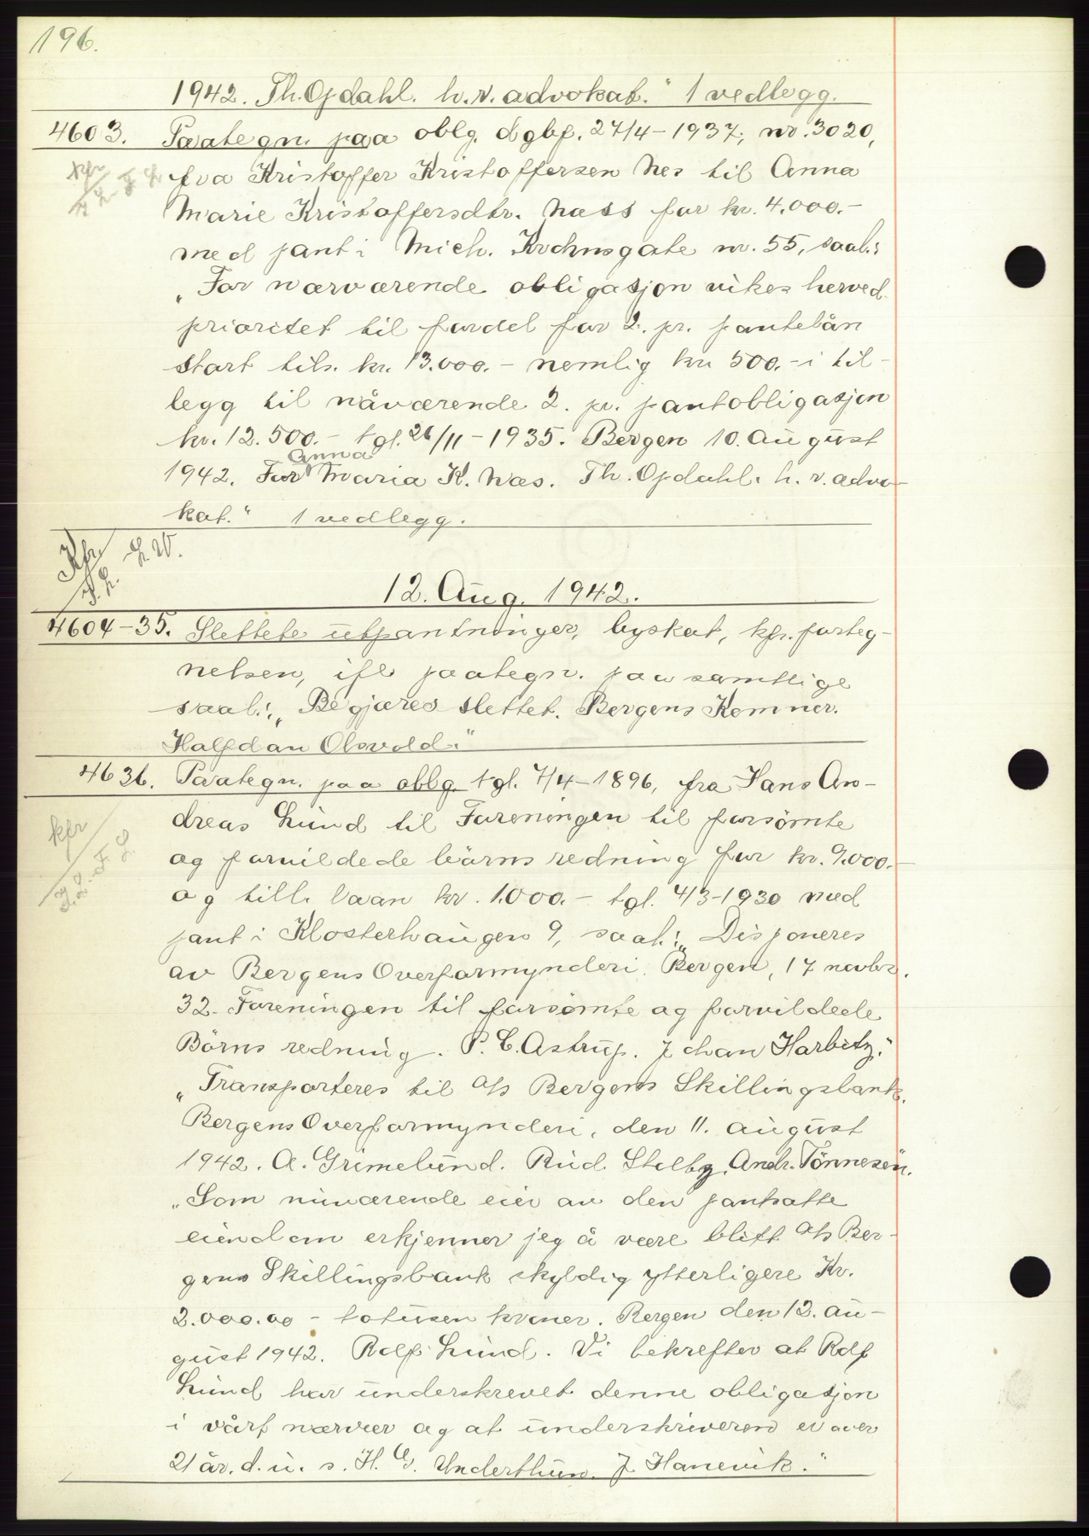 196.
1942. Th. Opdahl. h.r. advokat." 1 vedlegg.
4603. Paategn. paa oblg. dgbf. 27/4-1937, nr. 3020,
kfr fra Kristoffer Kristoffersen Nes til Anna
Marie Kristoffersdtr. Næss for kr. 4.000.-
med pant i Mich. Krohnsgate nr. 55, saal.:
"For nærværende obligasjon vikes herved
prioritet til fordel for 2. pr. pantelån
stort tils. kr. 13.000.- nemlig kr. 500.- i til-
legg til nåværende 2. pr. pantobligasjon
kr. 12.500.- tgl. 26/11-1935. Bergen 10. august
1942. For Anna Maria K. Næs. Th. Opdahl. h.r. advo-
kat." 1 vedlegg.
Kfr.
12. Aug. 1942.
4604-35. Slettete utpantninger, byskat, kfr. forteg-
nelsen, ifl. paategn. paa samtlige
saal.: "Begjæres slettet. Bergens Kemner.
Halfdan Olsvold."
4636. Paategn. paa oblg. tgl. 7/4-1896, fra Hans An-
kfr dreas Lund til Foreningen til forsømte
og forvildede börns redning for kr. 9.000.-
og till. laan kr. 1.000.- tgl. 4/3-1930 med
pant i Klosterhaugen 9, saal.: "Disponeres
av Bergens Overformynderi. Bergen, 17 novbr.
32. Foreningen til forsömte og forvildede
Börns redning. P. C. Astrup. Johan Harbitz."
"Transporteres til A/s Bergens Skillingsbank.
Bergens Overformynderi, den 11. august
1942. A. Grimelund. Rud. Stelby. Andr. Tönnesen.
"Som nuværende eier av den pantsatte
eiendom erkjenner jeg å være blitt A/s Ber-
gens Skillingsbank skyldig ytterligere Kr.
2.000.00 - totusen kroner. Bergen den 12. au-
gust 1942. Rolf Lund. Vi bekrefter at Rolf
Lund har underskrevet denne obligasjon
i vårt nærvær og at underskriveren er over
21 år. d. u. s. H. G. Underthun. J. Hanevik."